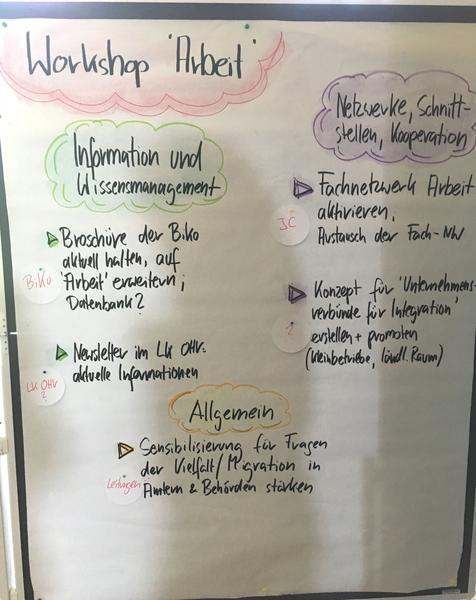 Workshop 'Arbeit'
Information und
Wissensmanagement
Broschüre der Biko
aktuell halten, auf
'Arbeit' erweitern;
Datenbank?
BiKo
Newsletter im LK OHV:
aktuelle Informationen
LK OHV
?
Netzwerke, Schnitt-
stellen, Kooperation
Fachnetzwerk Arbeit
aktivieren,
Austausch der Fach-NW
JC
Konzept für 'Unternehmens-
verbünde für Integration'
erstellen + promoten
(Kleinbetriebe, ländl. Raum)
?
Allgemein
Sensibilisierung für Fragen
der Vielfalt/Migration in
Ämtern & Behörden stärken
Leitungen